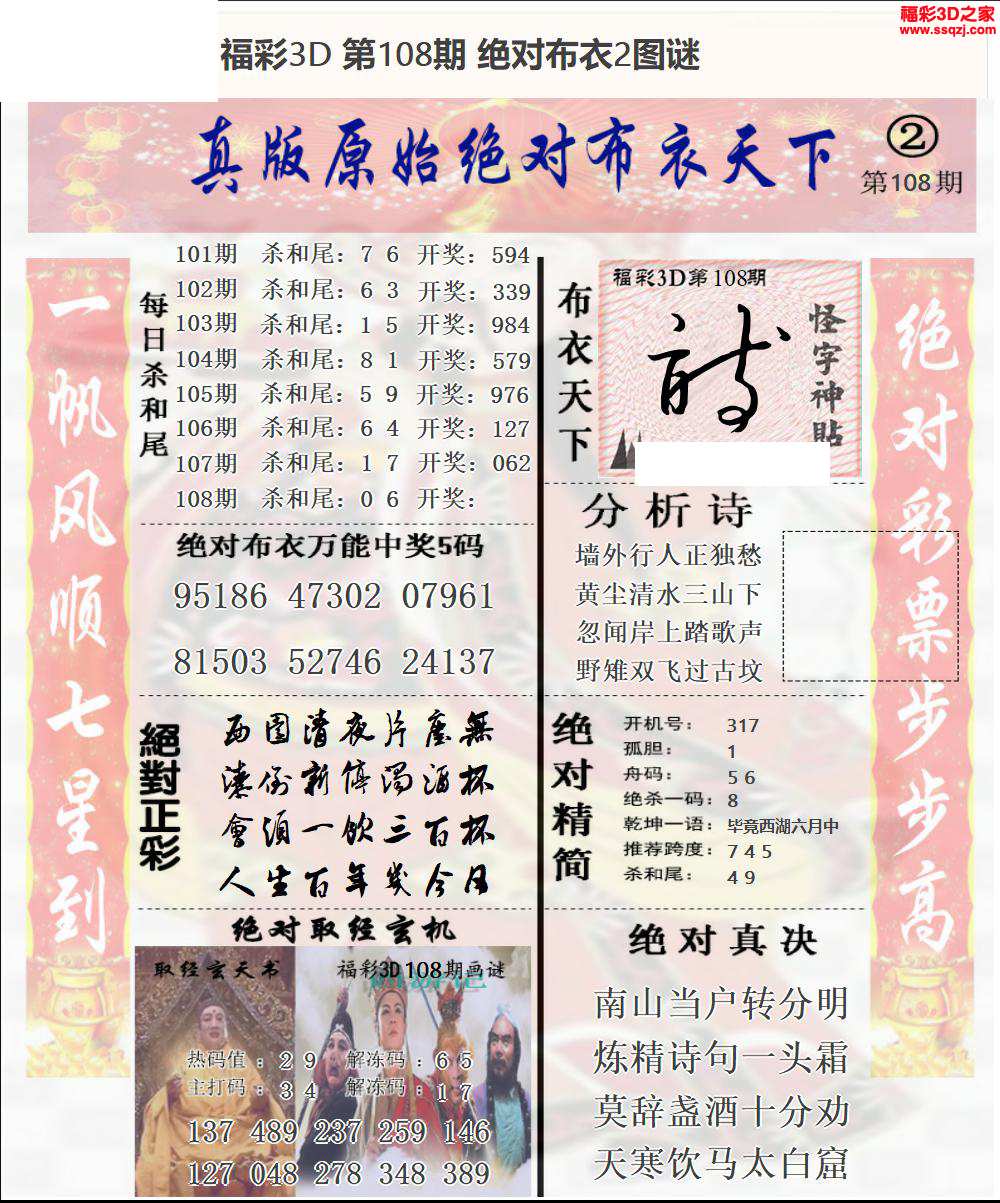 福彩3D之家
www.ssqzj.com
福彩3D 第108期 绝对布衣2图谜
真版原始绝对布衣天下
②
第108期
一帆风顺七星到
每日杀和尾
101期 杀和尾：7 6 开奖：594
102期 杀和尾：6 3 开奖：339
103期 杀和尾：1 5 开奖：984
104期 杀和尾：8 1 开奖：579
105期 杀和尾：5 9 开奖：976
106期 杀和尾：6 4 开奖：127
107期 杀和尾：1 7 开奖：062
108期 杀和尾：0 6 开奖：
绝对布衣万能中奖5码
95186 47302 07961
81503 52746 24137
絕對正彩
西园清夜片尘無
漆倒新停浊酒杯
會须一饮三百杯
人生百年几今日
绝对取经玄机
取经玄天书
福彩3D108期画谜
热码值：2 9 解冻码：6 5
主打码：3 4 解冻码：1 7
137 489 237 259 146
127 048 278 348 389
布衣天下
福彩3D第108期
怪字神貼
分析诗
墙外行人正独愁
黄尘清水三山下
忽闻岸上踏歌声
野雉双飞过古坟
绝对精简
开机号：317
孤胆：1
舟码：5 6
绝杀一码：8
乾坤一语：毕竟西湖六月中
推荐跨度：7 4 5
杀和尾：4 9
绝对真决
南山当户转分明
炼精诗句一头霜
莫辞盏酒十分劝
天寒饮马太白窟
绝对彩票步步高